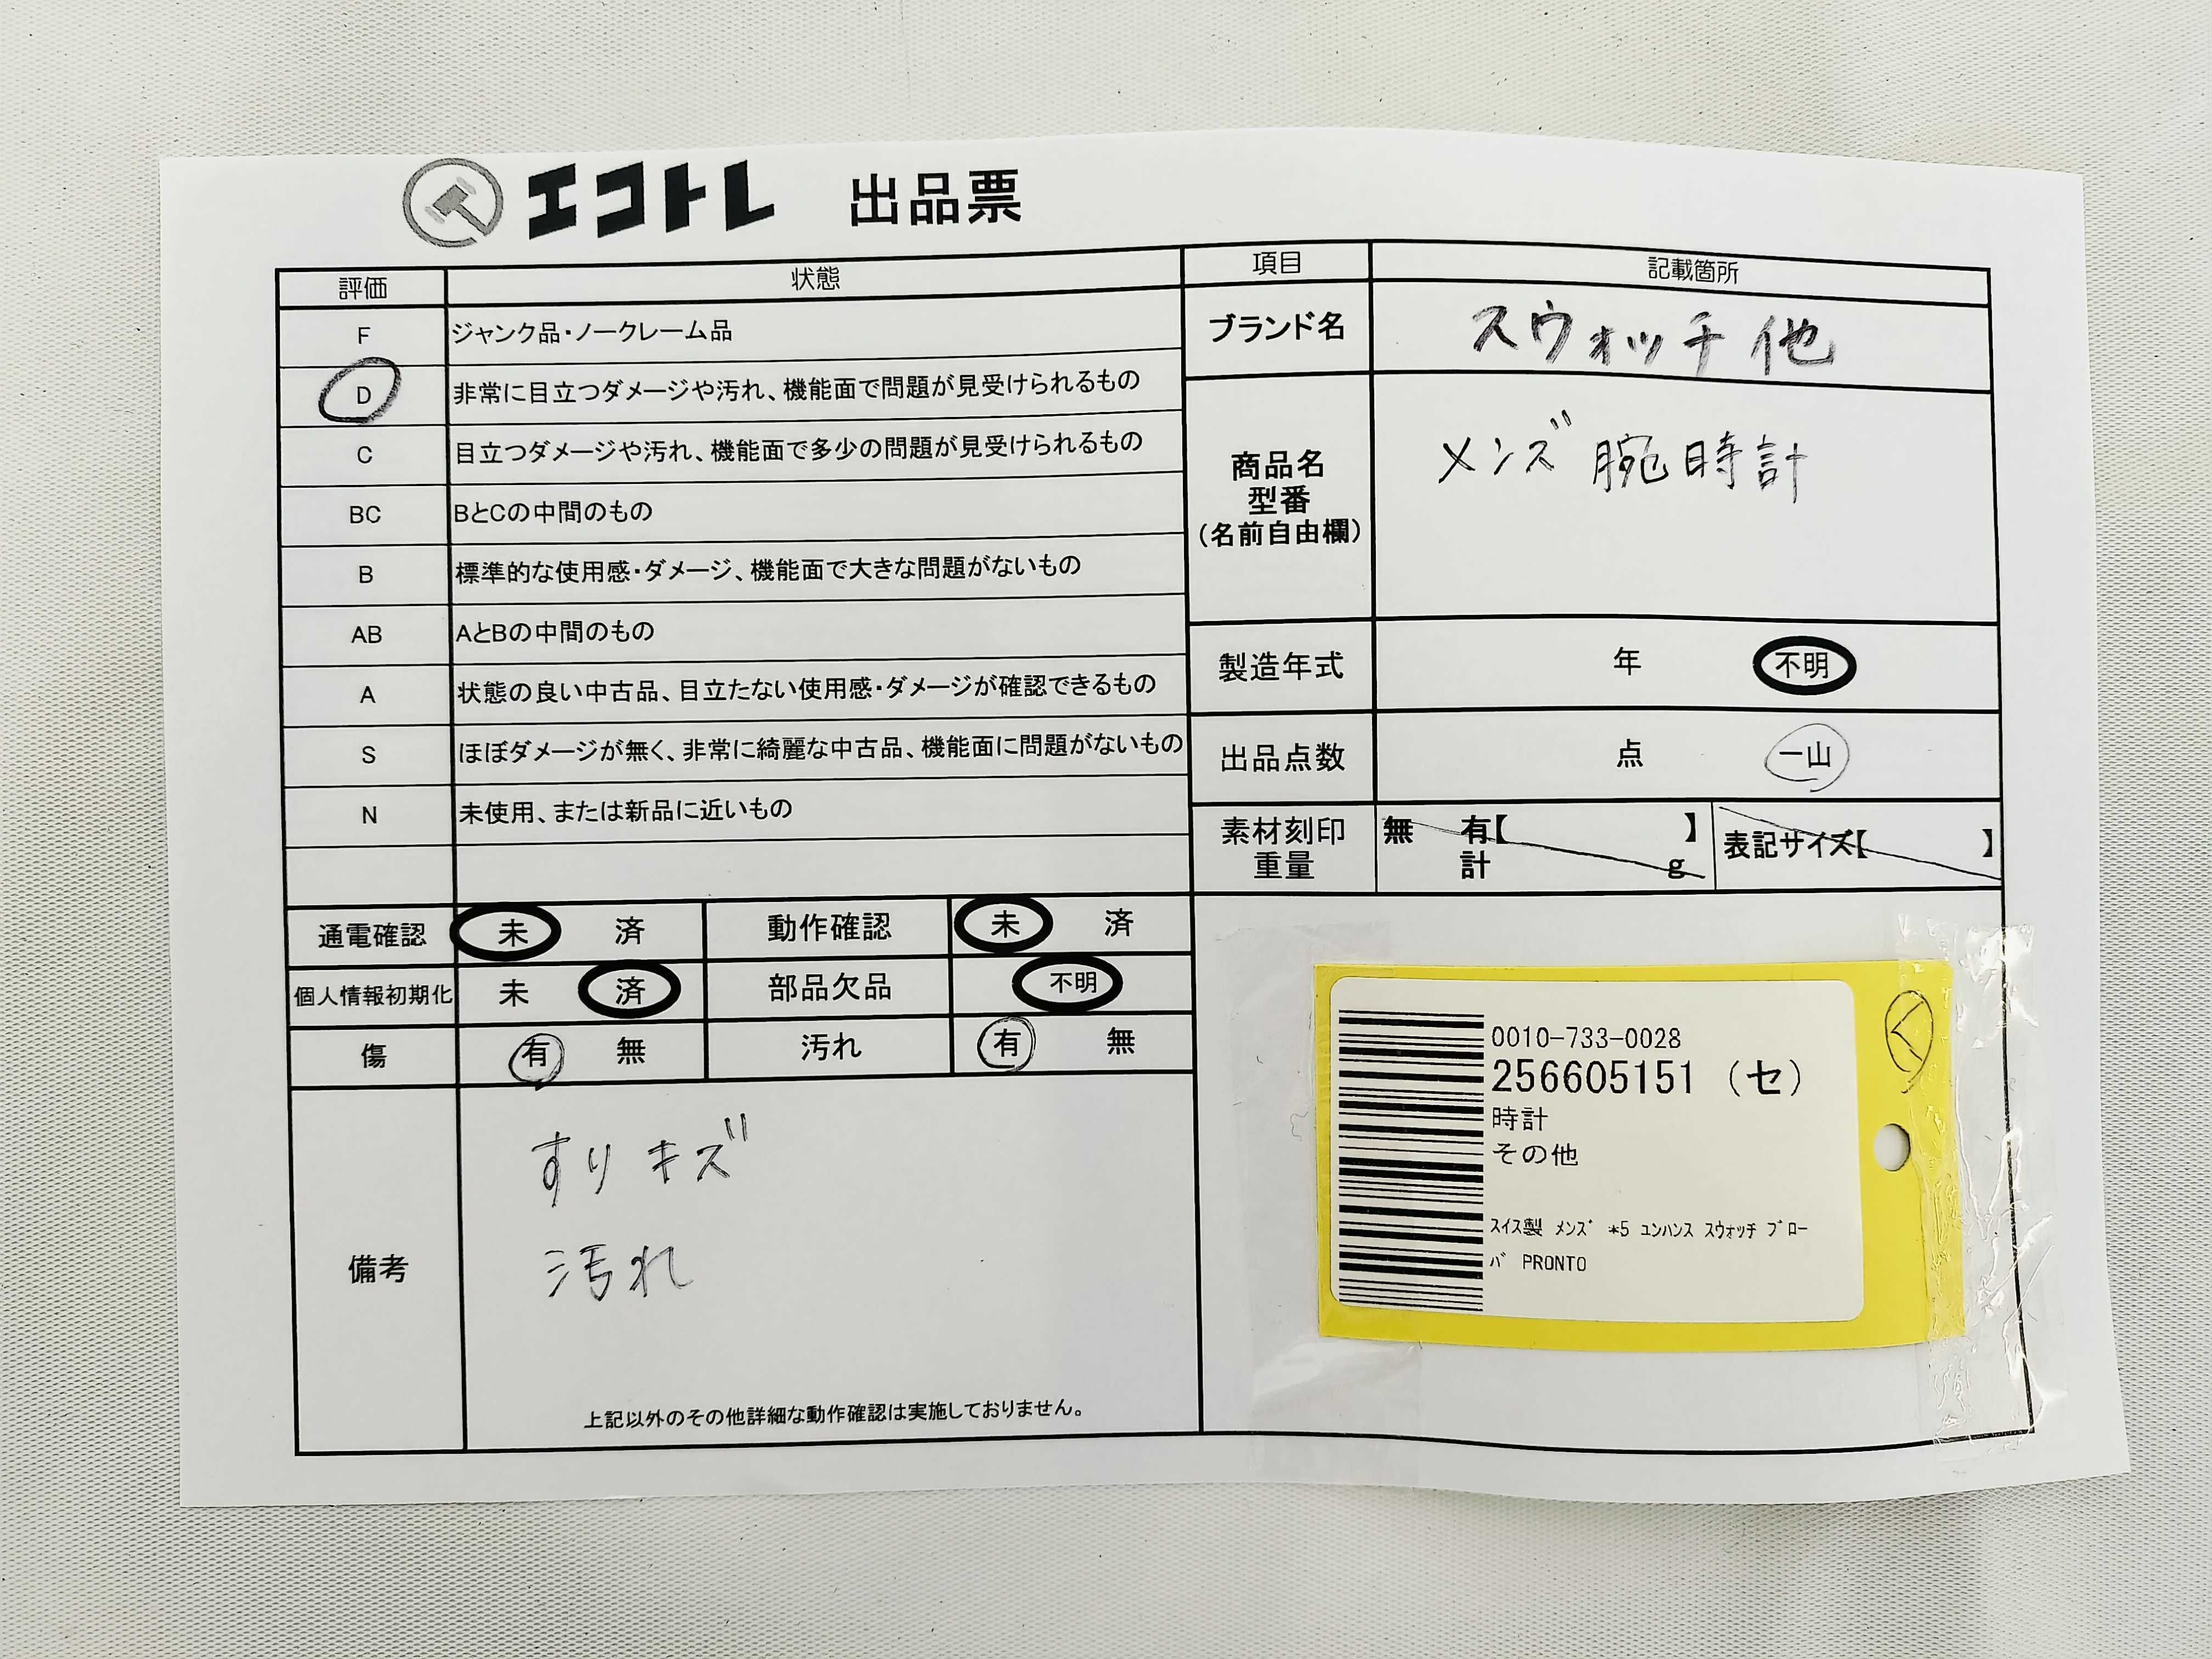 エコトレ 出品票
評価 状態
F ジャンク品・ノークレーム品
D 非常に目立つダメージや汚れ、機能面で問題が見受けられるもの
C 目立つダメージや汚れ、機能面で多少の問題が見受けられるもの
BC BとCの中間のもの
B 標準的な使用感・ダメージ、機能面で大きな問題がないもの
AB AとBの中間のもの
A 状態の良い中古品、目立たない使用感・ダメージが確認できるもの
S ほぼダメージが無く、非常に綺麗な中古品、機能面に問題がないもの
N 未使用、または新品に近いもの
通電確認 未 済 動作確認 未 済
個人情報初期化 未 済 部品欠品 不明
傷 有 無 汚れ 有 無
備考
すりキズ
汚れ
上記以外のその他詳細な動作確認は実施しておりません。
項目 記載箇所
ブランド名 スウォッチ他
商品名
型番
(名前自由欄)
メンズ腕時計
製造年式 年 不明
出品点数 点 一山
素材刻印
重量
無 有【 】
計 g
表記サイズ【 】
く
0010-733-0028
256605151 (セ)
時計
その他
スイス製 メンズ *5 ユンハンス スウォッチ ブロー
バ PRONTO